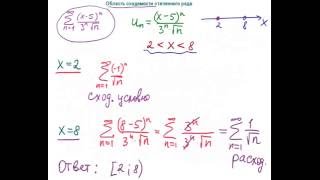 Область сходимости степенного ряда
∑_{n=1}^{∞} (x-5)^n / (3^n √n)
u_n = (x-5)^n / (3^n √n)
2 8 X
2 < X < 8
X = 2 ∑_{n=1}^{∞} (-1)^n / √n
сход. условно
X = 8 ∑_{n=1}^{∞} (8-5)^n / (3^n √n) = ∑_{n=1}^{∞} 3^n / (3^n √n) = ∑_{n=1}^{∞} 1 / √n
расход.
Ответ: [2; 8)